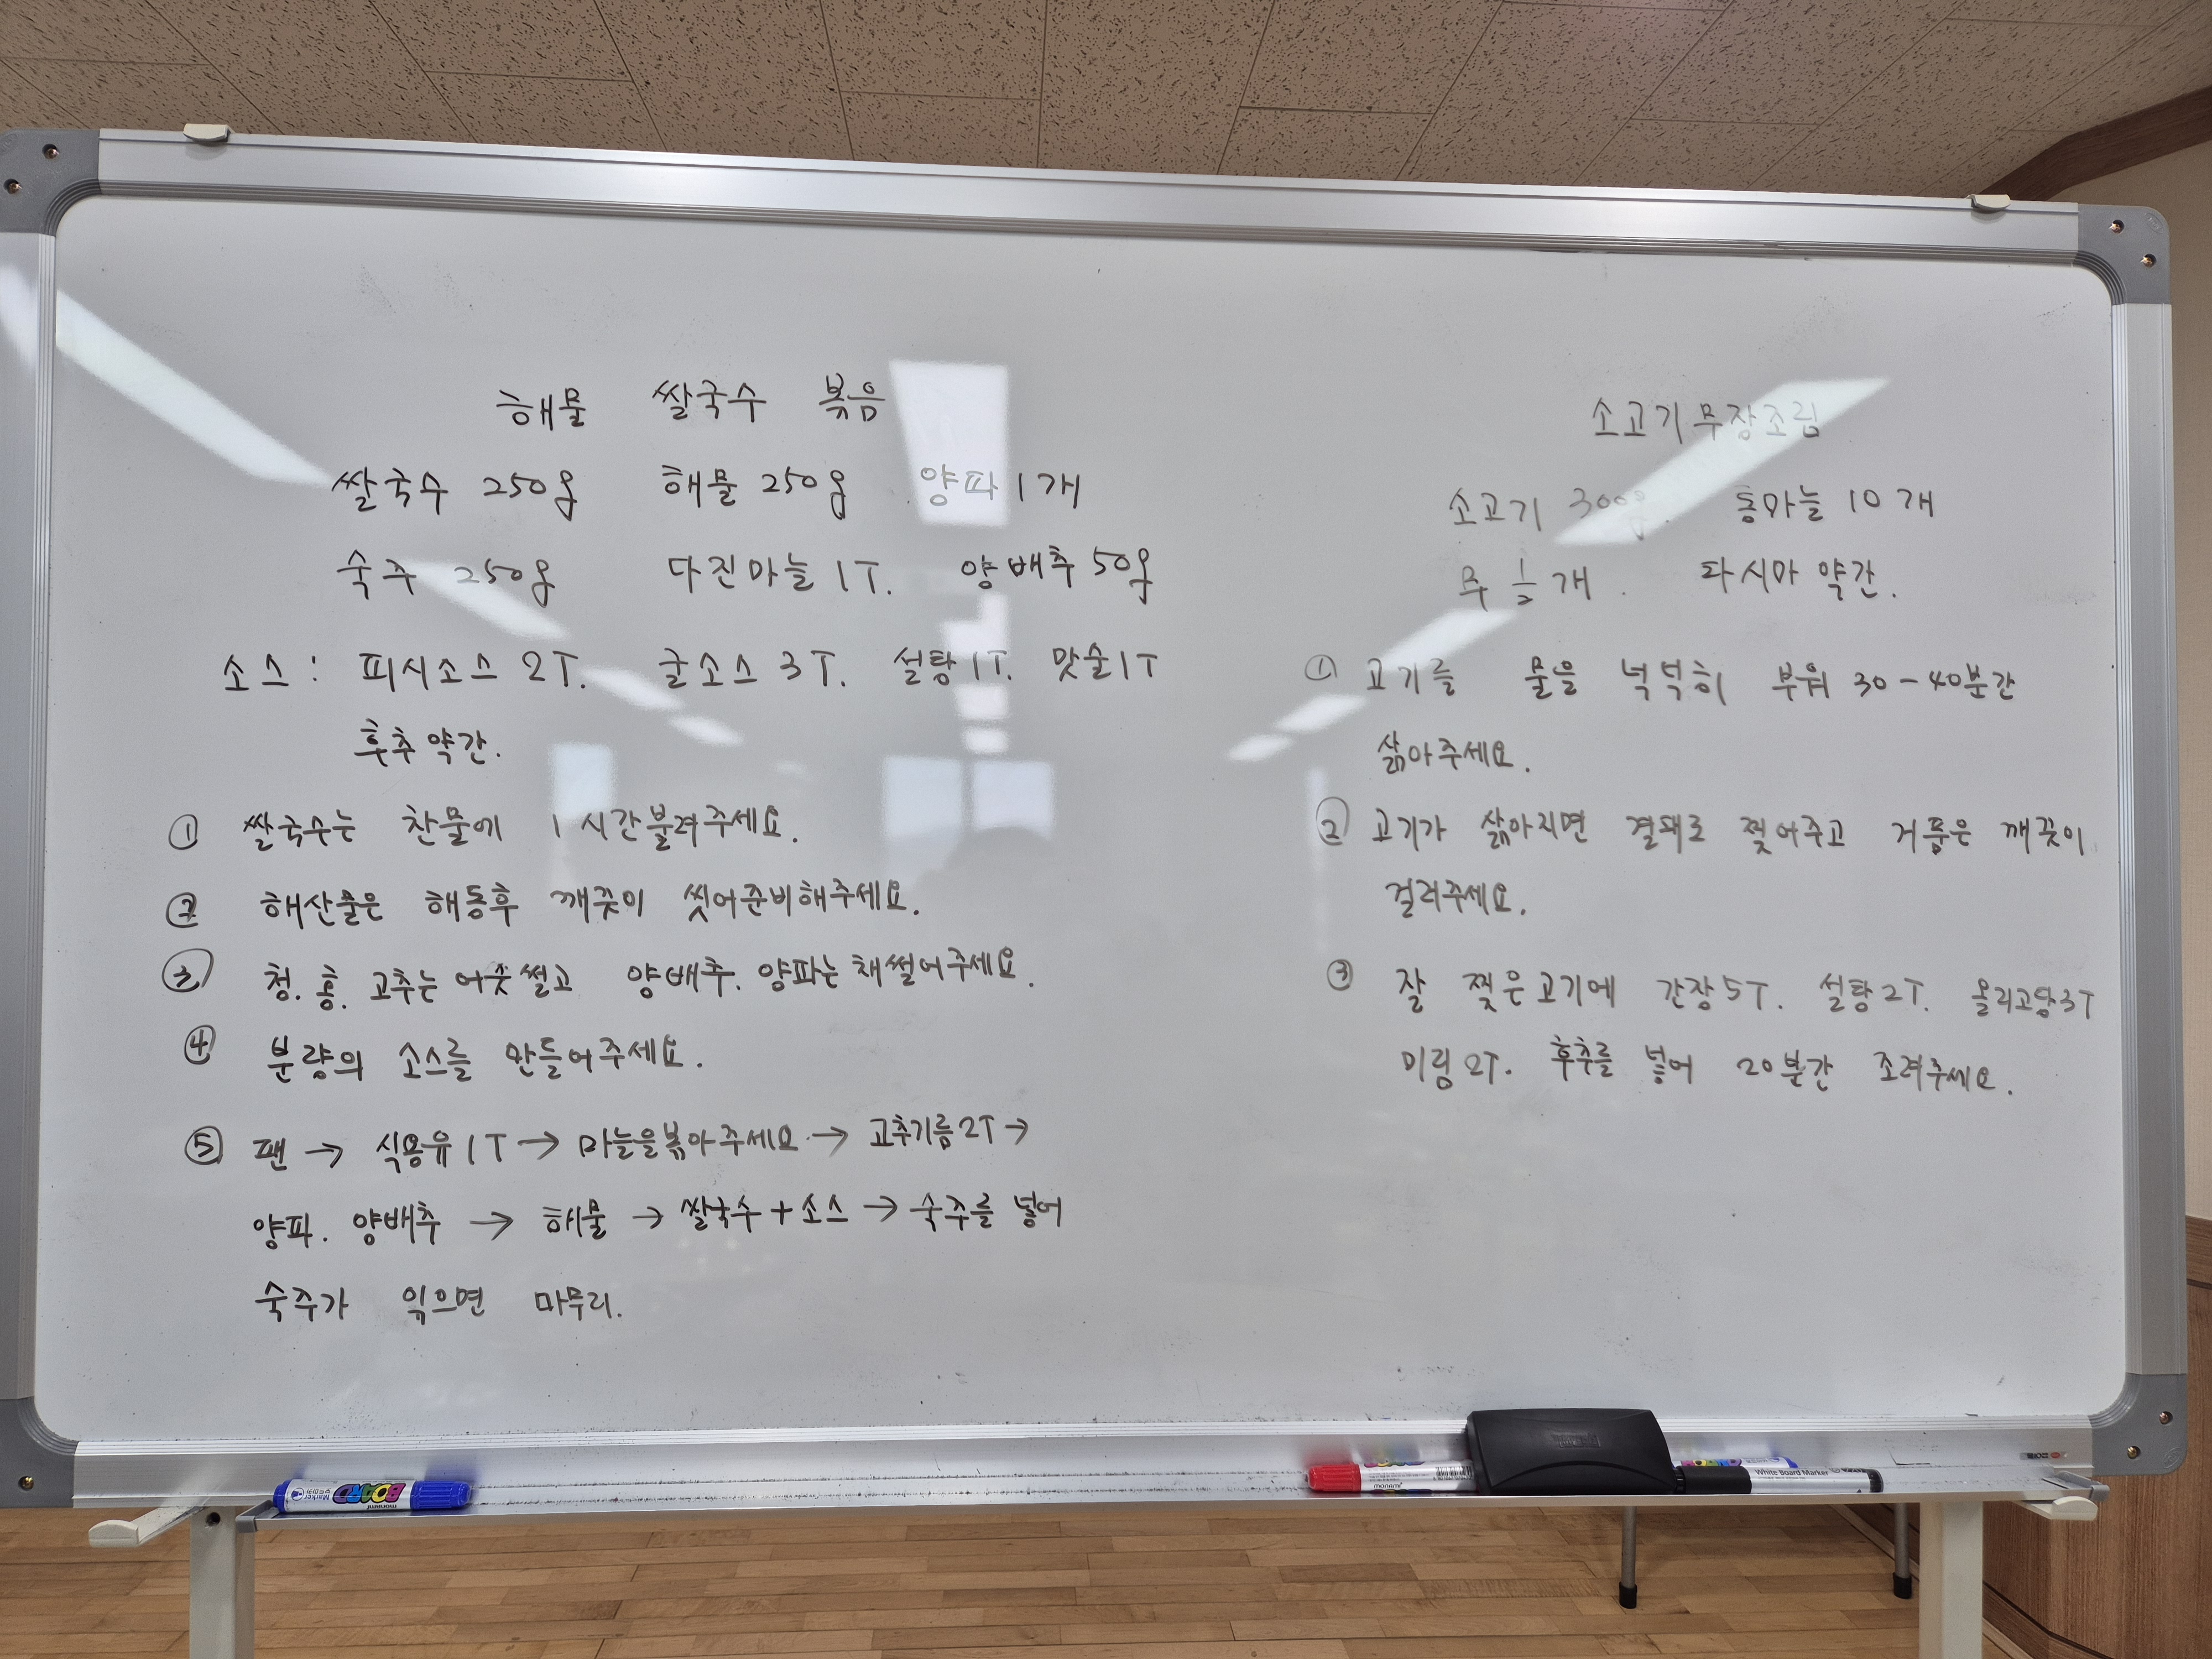 해물 쌀국수 볶음
쌀국수 250g 해물 250g 양파 1개
숙주 250g 다진마늘 1T. 양배추 50g
소스 : 피시소스 2T. 굴소스 3T. 설탕 1T. 맛술 1T
후추 약간.
① 쌀국수는 찬물에 1시간 불려주세요.
② 해산물은 해동후 깨끗이 씻어준비해주세요.
③ 청. 홍. 고추는 어슷썰고 양배추. 양파는 채썰어주세요.
④ 분량의 소스를 만들어주세요.
⑤ 팬 → 식용유 1T → 마늘을볶아주세요 → 고추기름 2T →
양파. 양배추 → 해물 → 쌀국수 + 소스 → 숙주를 넣어
숙주가 익으면 마무리.
소고기무장조림
소고기 300g. 통마늘 10개
무 1/2 개. 다시마 약간.
① 고기를 물을 넉넉히 부워 30-40분간
삶아주세요.
② 고기가 삶아지면 결대로 찢어주고 거품은 깨끗이
걸러주세요.
③ 잘 찢은고기에 간장5T. 설탕2T. 올리고당3T
미림 2T. 후추를 넣어 20분간 조려주세요.
BOARD
Marker
monami
monami
White Board Marker